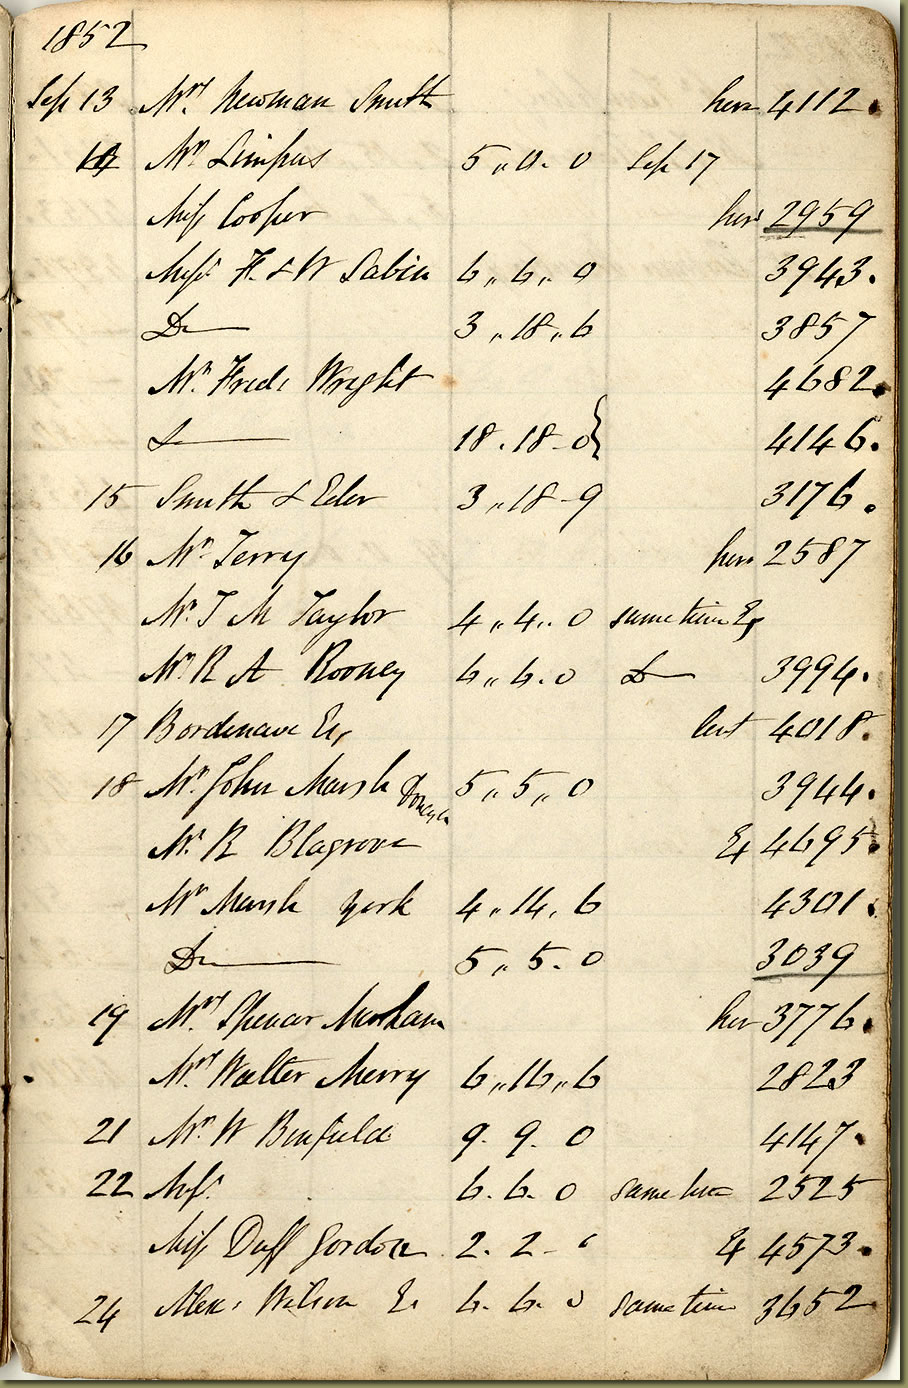 1852
Sep 13 Mrs. Newman Smith hers 4112.
14 Mr. Limpus 5,,0.0 Sep 17
Miss Cooper hers 2959
Messrs. H & W Sabin 6,,6,.0 3943.
Do 3,,18,,6 3857
Mr. Fredk Wright 4682.
Do 18.18-0} 4146.
15 Smith & Elder 3,,18-9 3176.
16 Mr. Terry hers 2587
Mr. T M Taylor 4,,4,.0 sometime Ex
Mr. R A Rooney 6,,6.0 Do 3994.
17 Bordenave Esq lent 4018.
18 Mr. John Marsh 5,,5,,0 3944.
Mr. R Blagrove Ex 4695.
Mr Marsh York 4,,14,6 4301.
Do 5,,5.0 3039
19 Mrs. Spencer her 3776.
Mrs. Walter Merry 6,,16,,6 2823
21 Mr. W Binfield 9.9.0 4147.
22 Messrs. 6.6.0 same time 2525
Miss Duff Gordon 2.2- Ex 4573.
24 Alexr Wilson Es 6.6.0 same time 3652.